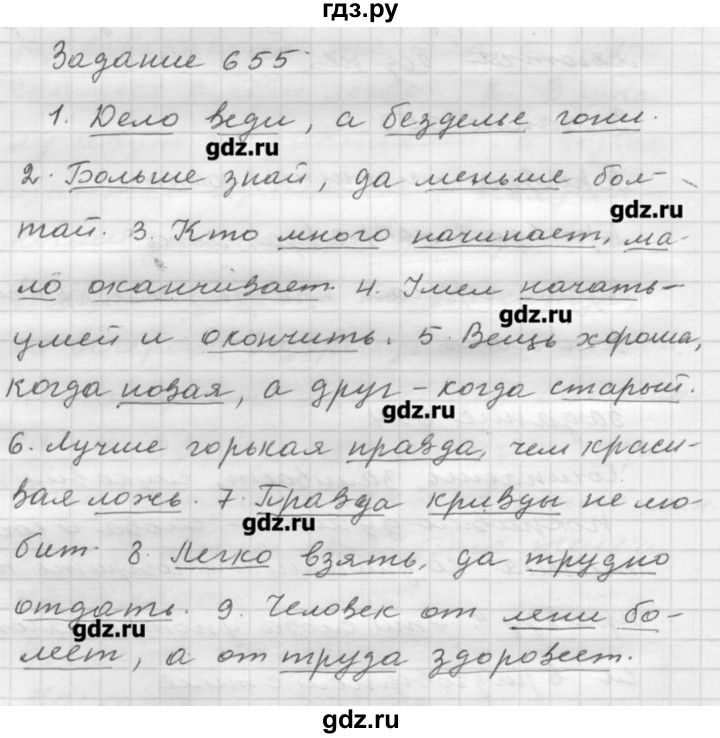 гдз.ру
Задание 655
1. Дело веди, а безделье гони.
gdz.ru
2. Больше знай, да меньше бол-
gdz.ru
тай. 3. Кто много начинает, ма-
ло оканчивает. 4. Умел начать-
gdz.ru
умей и окончить. 5. Вещь хороша,
когда новая, а друг - когда старый.
gdz.ru
6. Лучше горькая правда, чем краси-
вая ложь. 7. Правда кривды не лю-
gdz.ru
бит. 8. Легко взять, да трудно
отдать. 9. Человек от лени бо-
gdz.ru
леет, а от труда здоровеет.
gdz.ru